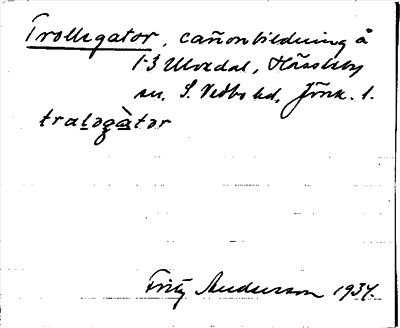 Trollegator, cañonbildning å
1-3 Ulvedal, Hässleby
sn, S. Vedbo hd, Jönk. l.
tralogàtor
Fritz Andersson 1934.